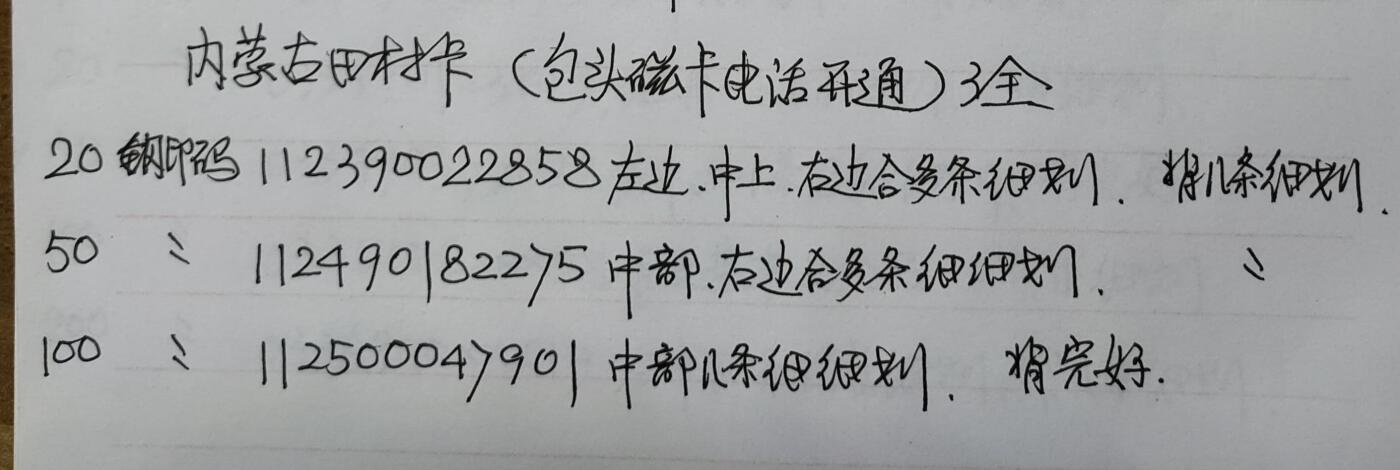 内蒙古田村卡（包头磁卡电话开通）3全
20 钢印码 112390022858 左边.中上.右边合多条细划. 背几条细划.
50 〃 112490182275 中部.右边合多条细细划. 〃
100 〃 112500047901 中部几条细细划. 背完好.